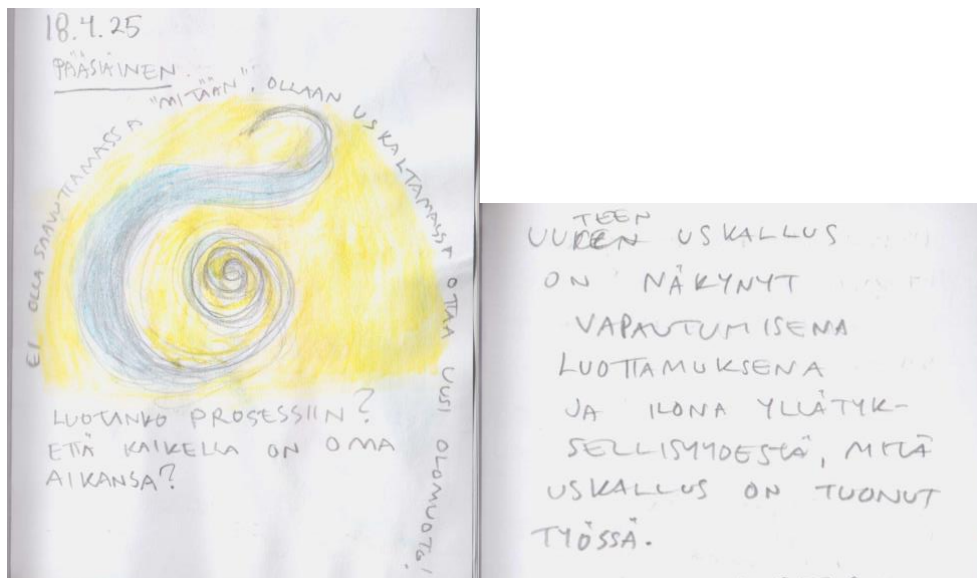 18.4.25
PÄÄSIÄINEN.
EI OLLA SAAVUTTAMASSA "MITÄÄN", OLLAAN USKALTAMASSA OTTAA UUSI OLOMUOTO!
LUOTANKO PROSESSIIN?
ETTÄ KAIKELLA ON OMA
AIKANSA?
TEEN
UUDEN USKALLUS
ON NÄKYNYT
VAPAUTUMISENA
LUOTTAMUKSENA
JA ILONA YLLÄTYK-
SELLISYYDESTÄ, MITÄ
USKALLUS ON TUONUT
TYÖSSÄ.